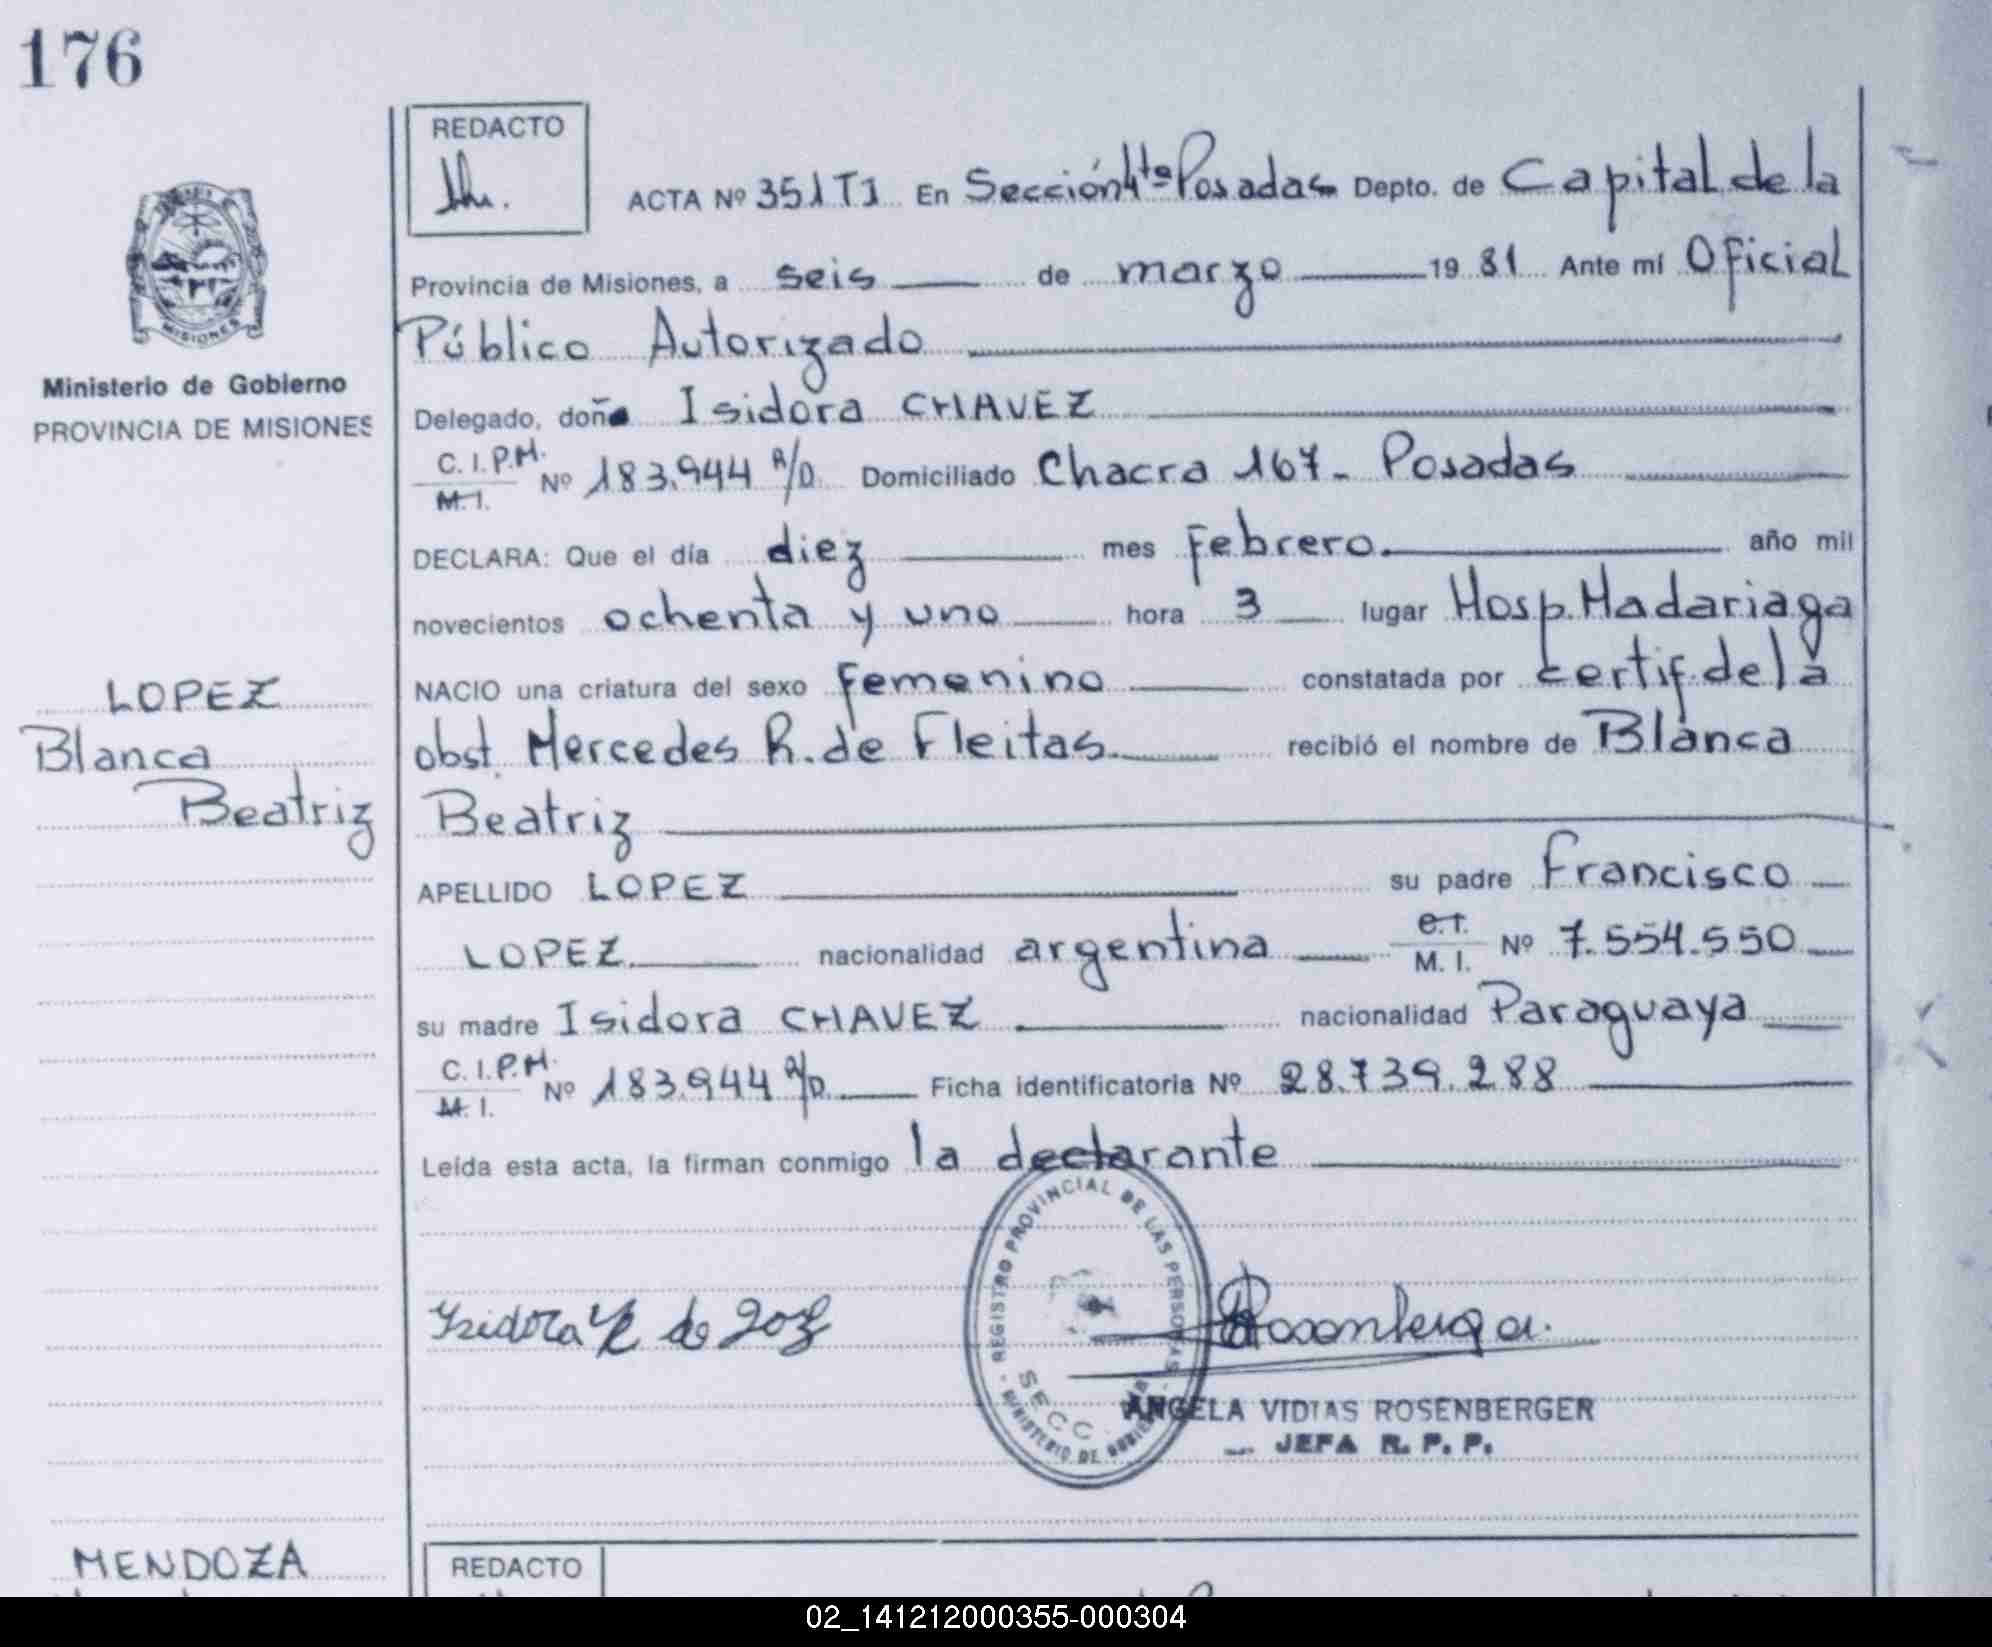 176
REDACTO
ACTA Nº 351 T I En Sección 4ta Posadas Depto. de Capital de la
Provincia de Misiones, a seis de marzo 19 81 Ante mí Oficial
Público Autorizado
MISIONES
Ministerio de Gobierno
PROVINCIA DE MISIONES
Delegado, doña Isidora CHAVEZ
C. I. P.M. M. I. Nº 183.944 R/D. Domiciliado Chacra 167- Posadas
DECLARA: Que el día diez mes Febrero. año mil
novecientos ochenta y uno hora 3 lugar Hosp. Madariaga
LOPEZ
Blanca
Beatriz
NACIO una criatura del sexo Femenino constatada por certif. de la
obst. Mercedes R. de Fleitas. recibió el nombre de Blanca
Beatriz
APELLIDO LOPEZ su padre Francisco
LOPEZ. nacionalidad argentina C.I. M. I. Nº 7.554.550
su madre Isidora CHAVEZ nacionalidad Paraguaya
C. I. P.M. M. I. Nº 183.944 R/D. Ficha identificatoria Nº 28.739.288
Leída esta acta, la firman conmigo la declarante
REGISTRO PROVINCIAL DE LAS PERSONAS
SECC.
MINISTERIO DE GOBIERNO
Isidora de
Rosenberger
ANGELA VIDIAS ROSENBERGER
JEFA R. P. P.
MENDOZA
REDACTO
02_141212000355-000304